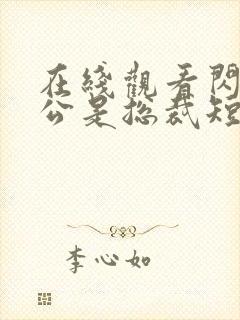 在綫觀看閃
公是总裁短
李心如